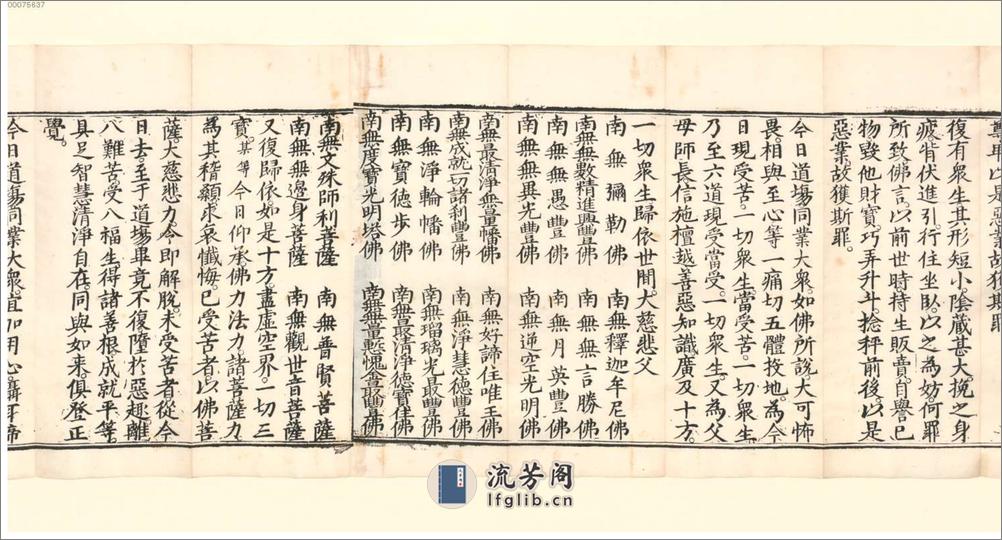 00075637
復有衆生其形短小陰藏甚大挽之身
疲背伏進引行住坐臥以之為妨何罪
所致佛言以前世時持生販賣自譽己
物毀他財寶巧弄升斗捻秤前後以是
惡業故獲斯罪
今日道場同業大衆如佛所說大可怖
畏相與至心等一痛切五體投地為今
日現受苦一切衆生當受苦一切衆生
乃至六道現受當受一切衆生又為父
母師長信施檀越善惡知識廣及十方
一切衆生歸依世間大慈悲父
南無彌勒佛 南無釋迦牟尼佛
南無無數精進興豐佛 南無無言勝佛
南無無愚豐佛 南無月英豐佛
南無無異光豐佛 南無逆空光明佛
南無最清淨無量幡佛 南無好諦住唯王佛
南無成就一切諸利豐佛 南無淨慧德豐佛
南無淨輪幡佛 南無瑠璃光最豐佛
南無寶德步佛 南無最清淨德寶住佛
南無度寶光明塔佛 南無無量慙愧金最豐佛
南無文殊師利菩薩 南無普賢菩薩
南無無邊身菩薩 南無觀世音菩薩
又復歸依如是十方盡虛空界一切三
寶某等今日仰承佛力法力諸菩薩力
為其稽顙求哀懺悔已受苦者以佛菩
薩大慈悲力令即解脫未受苦者從今
日去至于道場畢竟不復墮於惡趣離
八難苦受八福生得諸善根成就平等
具足智慧清淨自在同與如來俱登正
覺
今日道場同業大衆宜加用心
流芳阁
lfglib.cn